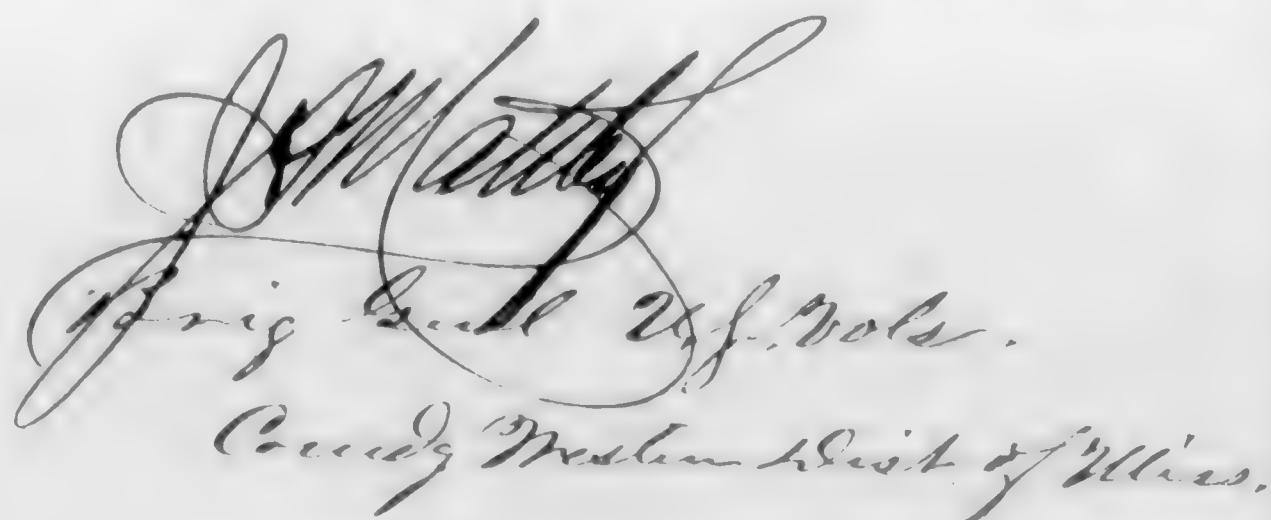 J A Maltby
Brig Genl U.S. Vols.
Comdg Western Dist of Miss.